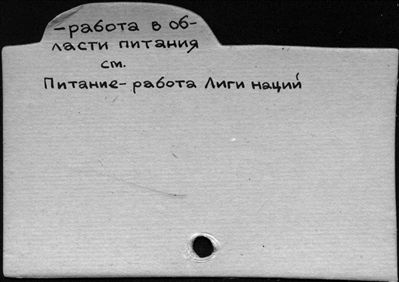 -работа в об-
ласти питания
см.
Питание- работа Лиги наций